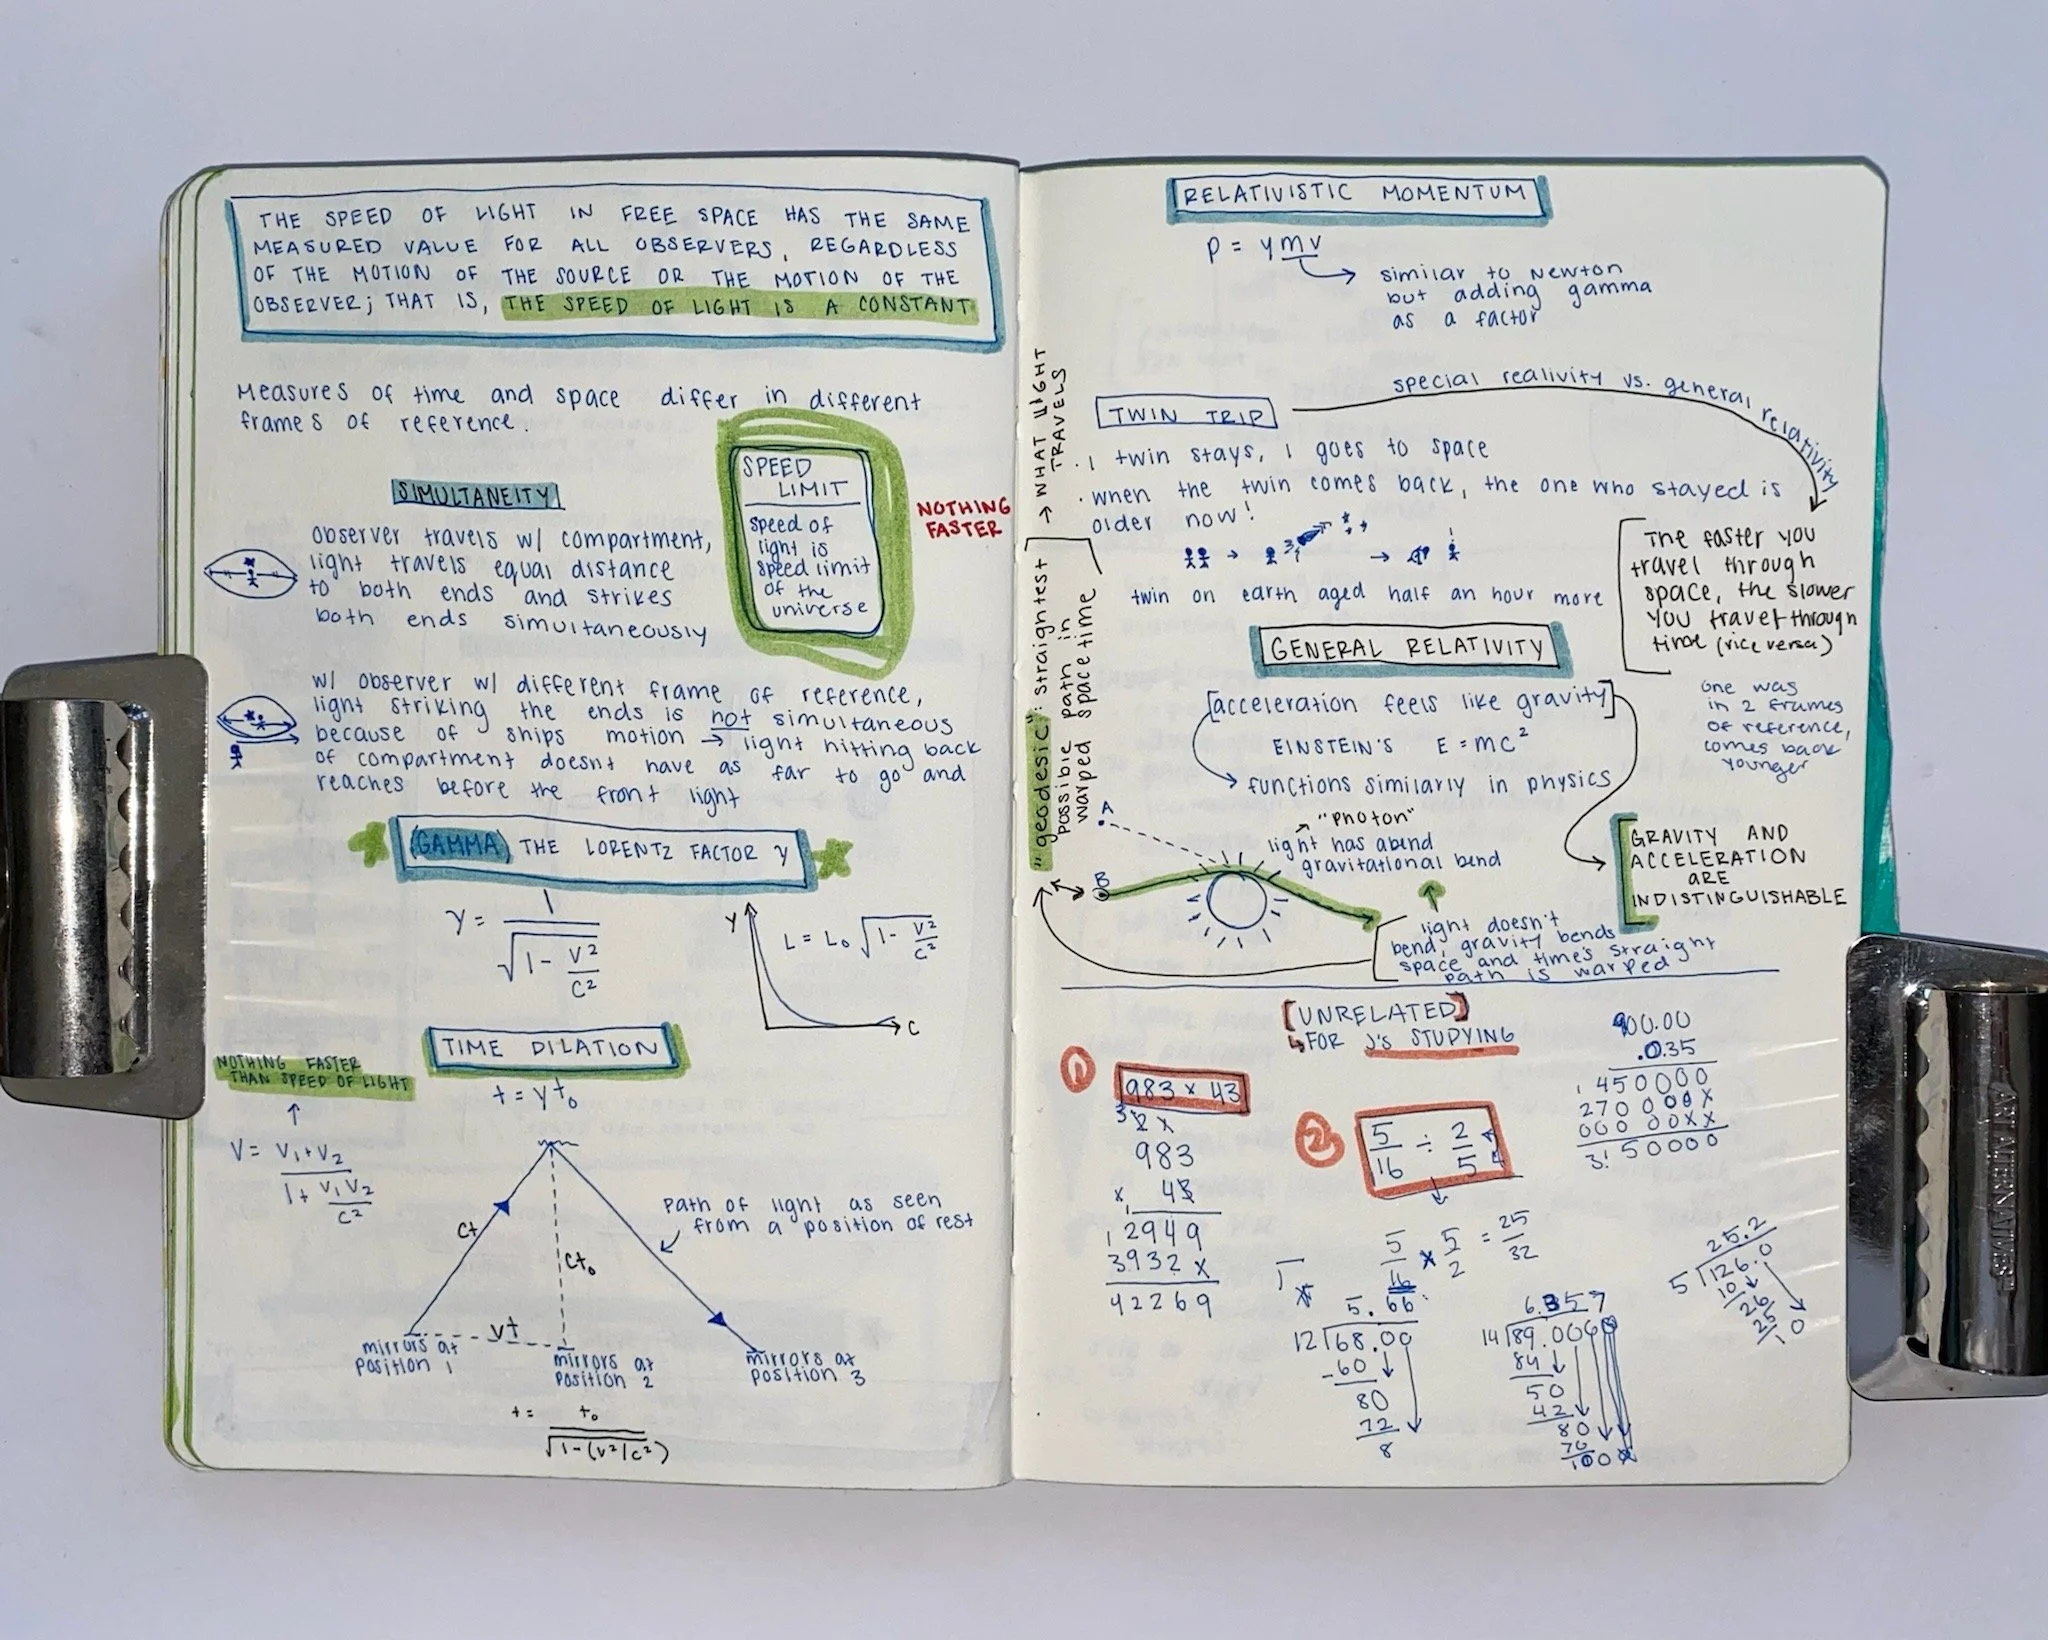 THE SPEED OF LIGHT IN FREE SPACE HAS THE SAME
MEASURED VALUE FOR ALL OBSERVERS, REGARDLESS
OF THE MOTION OF THE SOURCE OR THE MOTION OF THE
OBSERVER; THAT IS, THE SPEED OF LIGHT IS A CONSTANT
Measures of time and space differ in different
frames of reference.
SPEED
LIMIT
speed of
light is
speed limit
of the
universe
NOTHING
FASTER
SIMULTANEITY
observer travels w/ compartment,
light travels equal distance
to both ends and strikes
both ends simultaneously
w/ observer w/ different frame of reference,
light striking the ends is not simultaneous
because of ships motion → light hitting back
of compartment doesnt have as far to go and
reaches before the front light
GAMMA THE LORENTZ FACTOR γ
γ = 1
√1 - v²
c²
γ
L = L₀ √1 - v²
c²
C
TIME DILATION
t = γt₀
NOTHING FASTER
THAN SPEED OF LIGHT
↑
V = V₁+V₂
1+ V₁V₂
C²
Path of light as seen
from a position of rest
ct
ct₀
vt
mirrors at
position 1
mirrors at
position 2
mirrors at
position 3
t = t₀
√1-(v²/c²)
"geodesic": straightest
possible path in
warped space time
→ WHAT LIGHT
TRAVELS
RELATIVISTIC MOMENTUM
p = γmv
similar to Newton
but adding gamma
as a factor
special realivity vs. general relativity
TWIN TRIP
· 1 twin stays, 1 goes to space
· when the twin comes back, the one who stayed is
older now!
twin on earth aged half an hour more
The faster you
travel through
space, the slower
you travel through
time (vice versa)
one was
in 2 frames
of reference,
comes back
younger
GENERAL RELATIVITY
[acceleration feels like gravity]
EINSTEIN'S E = MC²
functions similarly in physics
GRAVITY AND
ACCELERATION
ARE
INDISTINGUISHABLE
A
B
"photon"
light has a bend
gravitational bend
light doesn't
bend, gravity bends
space and time's straight
path is warped
[UNRELATED]
↳ FOR J's STUDYING
1
983 x 43
983
x 43
2949
3932 x
42269
2
5/16 ÷ 2/5
5/16 x 5/2 = 25/32
900.00
.035
450000
270000x
000 00xx
31.50000
5.66
12√68.00
-60
80
72
8
6.357
14√89.000
84
50
42
80
70
100
25.2
5√126.0
10
26
25
10
ARTALTERNATIVES